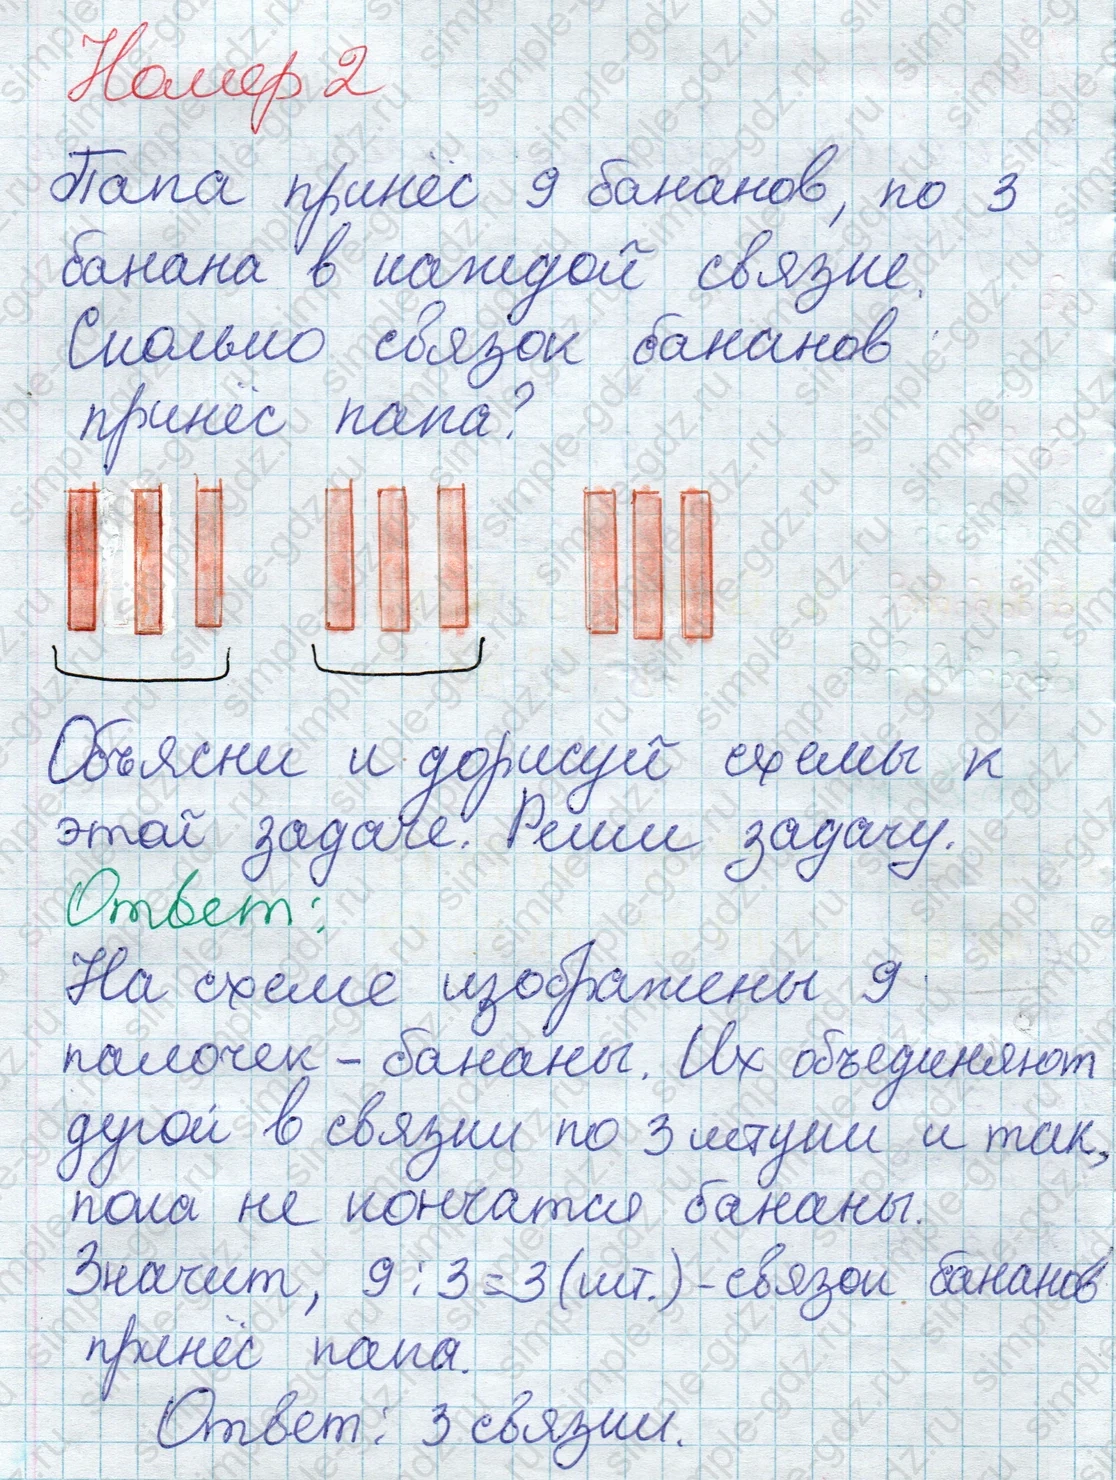 Номер 2
Папа принёс 9 бананов, по 3
банана в каждой связке.
Сколько связок бананов
принёс папа?
Объясни и дорисуй схемы к
этой задаче. Реши задачу.
Ответ:
На схеме изображены 9
палочек - бананы. Их объединяют
дугой в связки по 3 штуки и так,
пока не кончатся бананы.
Значит, 9 : 3 = 3 (шт.) - связок бананов
принёс папа.
Ответ: 3 связки.
simple-gdz.ru